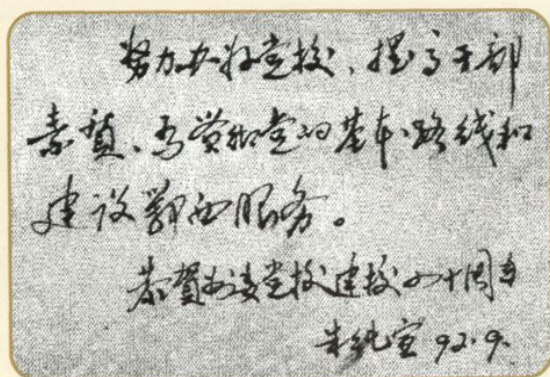 努力办好党校、提高干部
素质、为贯彻党的基本路线和
建设鄂西服务。
恭贺州委党校建校四十周年
朱纯宣 92.9.